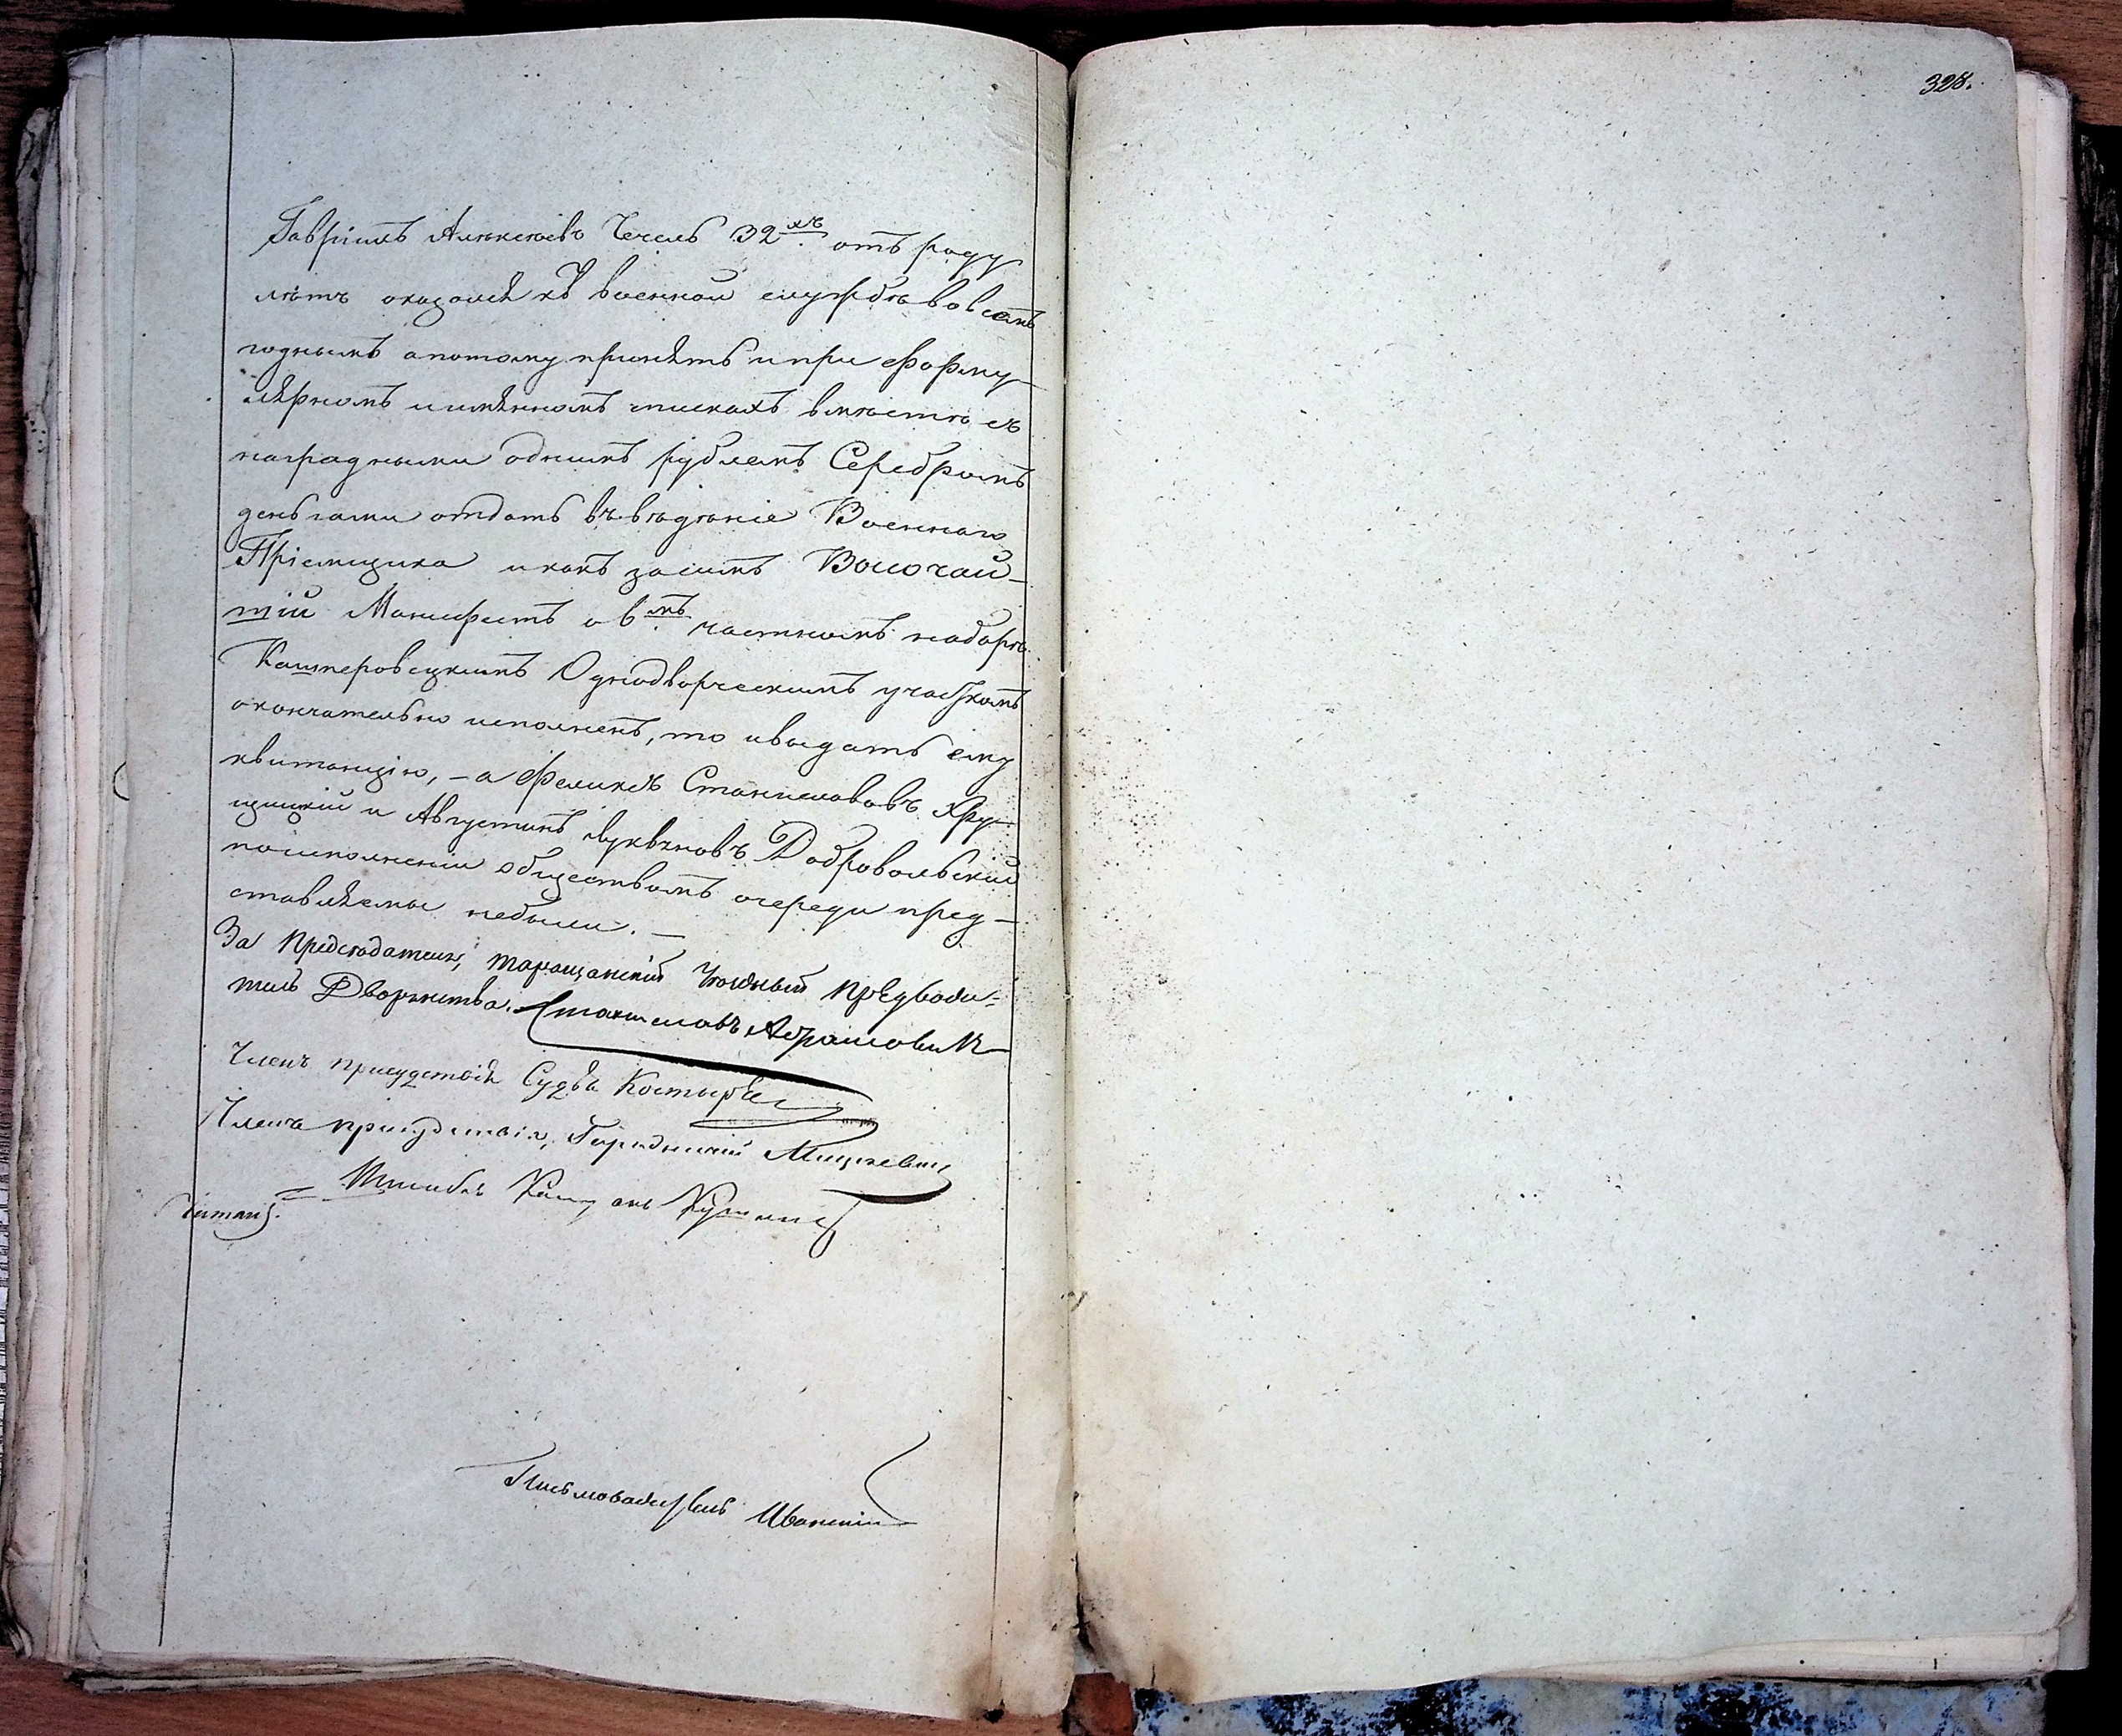 328.
Гавріилъ Алексѣевъ Чечель 32хъ отъ роду
лѣтъ оказался къ военной службѣ вовсемъ
годнымъ а потому принять и при форму-
лярномъ и имянномъ спискахъ вмѣстѣ съ
наградными однимъ рублемъ Серебромъ
деньгами отдать въ вѣдѣніе Военнаго
Пріемщика и какъ засимъ Высочай-
шій Манифестъ о 6мъ частномъ наборѣ
Кашперовецкимъ Однодворческимъ участкомъ
окончательно исполненъ, то и выдать ему
квитанцію, - а Феликсъ Станиславовъ Хру-
щицкій и Августинъ Лукьяновъ Добровольскій
по исполненіи обществомъ очереди пред-
ставляемы небыли. -
За Председателя, таращанскій Уѣздный Предводи=
тель Дворянства. Станиславъ Абрамовичъ
Членъ присудствія Судья Костыр
Членъ присудствія, Городничій Мицкевич
Штабсъ Капитанъ
Читалъ.
Письмоводитель Иванскій